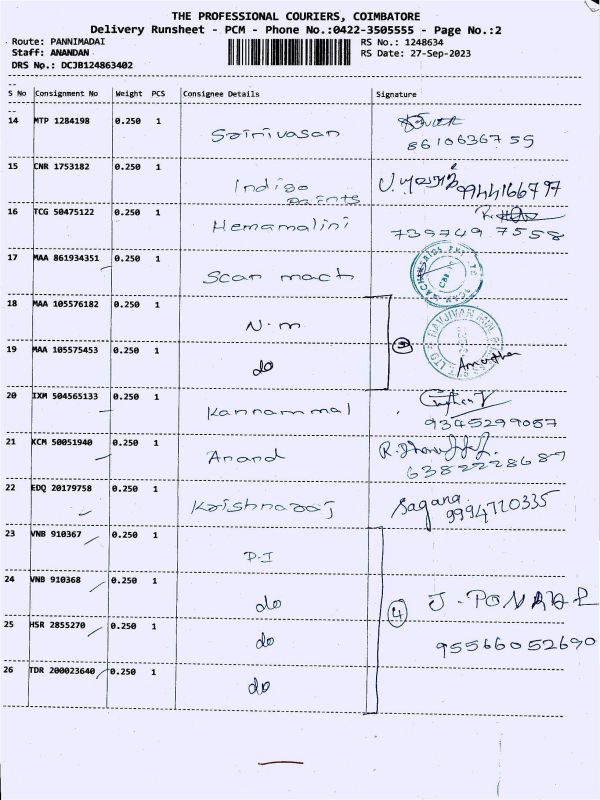 THE PROFESSIONAL COURIERS, COIMBATORE
Delivery Runsheet - PCM - Phone No.:0422-3505555 - Page No.:2
Route: PANNIMADAI RS No.: 1248634
Staff: ANANDAN RS Date: 27-Sep-2023
DRS No.: DCJB124863402
S No Consignment No Weight PCS Consignee Details Signature
14 MTP 1284198 0.250 1 Srinivasan
8610636755
15 CNR 1753182 0.250 1 Indigo Paints 9944166797
16 TCG 50475122 0.250 1 Hemamalini
739749 7558
17 MAA 861934351 0.250 1 Scan mach
18 MAA 105576182 0.250 1 N.m
19 MAA 105575453 0.250 1 do
20 IXM 504565133 0.250 1 Kannammal
9345299057
21 KCM 50051940 0.250 1 Anand
6382228687
22 EDQ 20179758 0.250 1 Krishnaraj Sagana
9994720335
23 VNB 910367 0.250 1 P-I
24 VNB 910368 0.250 1 do 4 J. PONNAR
25 HSR 2855270 0.250 1 do 95566052690
26 TDR 200023640 0.250 1 do